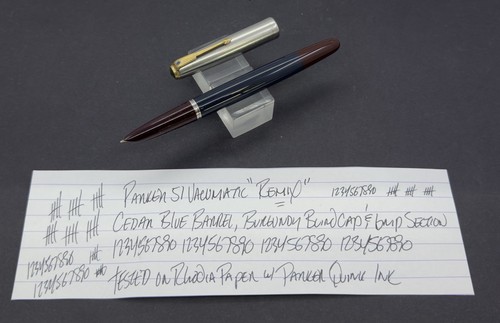 Parker 51 Vacumatic "Remix" 1234567890
Cedar Blue Barrel, Burgundy Blind Cap & Grip Section
1234567890 1234567890 1234567890 1234567890
1234567890
1234567890 Tested on Rhodia Paper w/ Parker Quink Ink